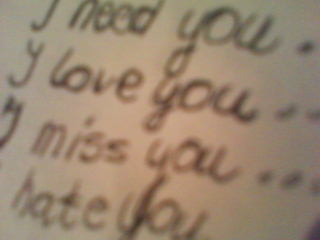 I need you .
I love you ..
I miss you ...
hate you